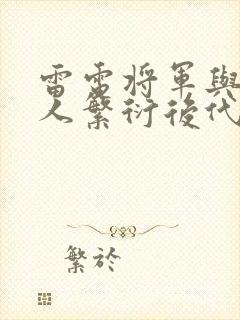 雷雷將軍與
人繁衍後代
繁於